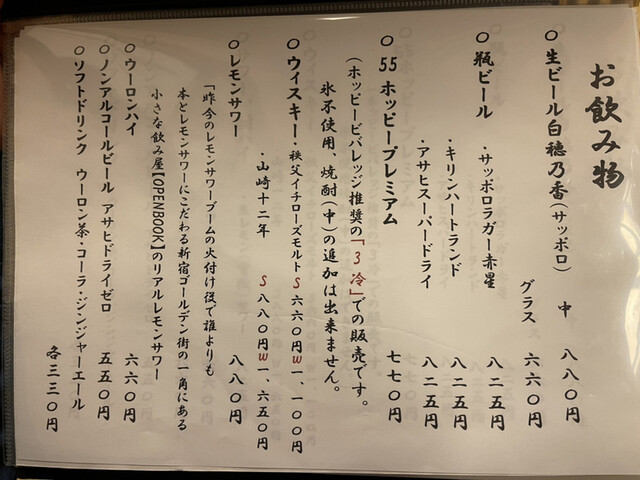 お飲み物
○生ビール白穂乃香(サッポロ) 中 八八〇円
グラス 六六〇円
○瓶ビール
・サッポロラガー赤星 八二五円
・キリンハートランド 八二五円
・アサヒスーパードライ 八二五円
○55ホッピープレミアム 七七〇円
(ホッピービバレッジ推奨の「3冷」での販売です。
氷不使用、焼酎(中)の追加は出来ません。
○ウィスキー・秩父イチローズモルト S六六〇円W一、一〇〇円
・山崎十二年 S八八〇円W一、六五〇円
○レモンサワー 八八〇円
「昨今のレモンサワーブームの火付け役で誰よりも
本とレモンサワーにこだわる新宿ゴールデン街の一角にある
小さな飲み屋【OPENBOOK】のリアルレモンサワー
○ウーロンハイ 六六〇円
○ノンアルコールビール アサヒドライゼロ 五五〇円
○ソフトドリンク ウーロン茶・コーラ・ジンジャーエール 各三三〇円